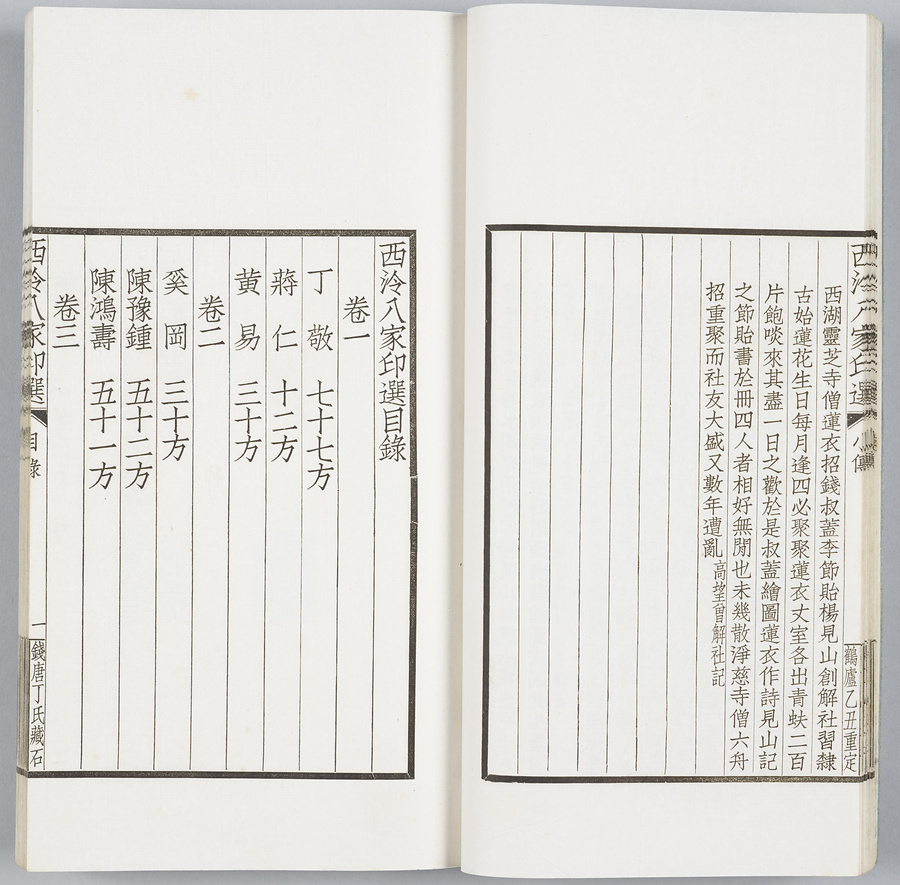 西泠八家印選
小傳
鶴廬乙丑重定
西湖靈芝寺僧蓮衣招錢叔蓋李節貽楊見山創解社習隸
古始蓮花生日每月逢四必聚聚蓮衣丈室各出青蚨二百
片飽啖來其盡一日之歡於是叔蓋繪圖蓮衣作詩見山記
之節貽書於冊四人者相好無閒也未幾散淨慈寺僧六舟
招重聚而社友大盛又數年遭亂高望曾解社記
西泠八家印選目錄
卷一
丁敬 七十七方
蔣仁 十二方
黃易 三十方
卷二
奚岡 三十方
陳豫鍾 五十二方
陳鴻壽 五十一方
卷三
西泠八家印選
目錄
一
錢唐丁氏藏石